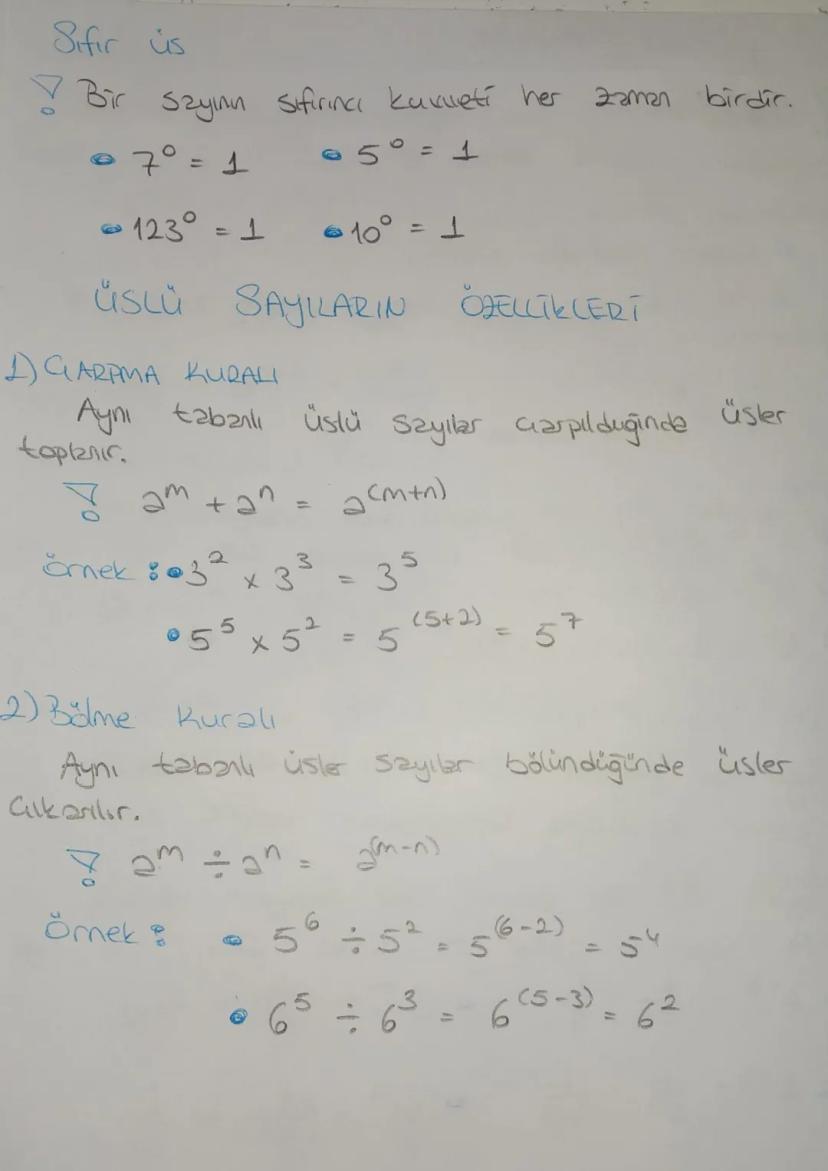 Sıfır üs
! Bir sayının sıfırıncı kuvveti her zaman birdir.
• 7⁰ = 1 • 5⁰ = 1
• 123⁰ = 1 • 10⁰ = 1
ÜSLÜ SAYILARIN ÖZELLİKLERİ
1) ÇARPMA KURALI
Aynı tabanlı üslü sayılar çarpılduğinde üsler
toplanır.
! a^m + a^n = a^(m+n)
örnek : • 3² x 3³ = 3⁵
• 5⁵ x 5² = 5^(5+2) = 5⁷
2) Bölme Kuralı
Aynı tabanlı üsler sayılar bölündüğünde üsler
çıkarılır.
! a^m ÷ a^n = a^(m-n)
Örnek : • 5⁶ ÷ 5² = 5^(6-2) = 5⁴
• 6⁵ ÷ 6³ = 6^(5-3) = 6²